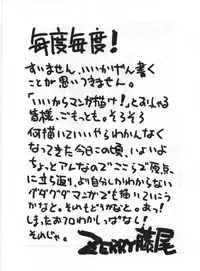 毎度毎度!
すいません、いいかげん書く
ことが思いつきません。
「いいからマンガ描け!」とおっしゃる
皆様、ごもっとも。そろそろ
何描いていいやらわかんなく
なってきた今日この頃、いよいよ
ちょっとアレなのでここらで原点
に立ち返り、より自分しかわからない
グダグダマンガでも描いていこう
かなと。それもどうかなと。あっ!
しまった、お口わかしっぱなし!
それじゃ。
ZERRY藤尾